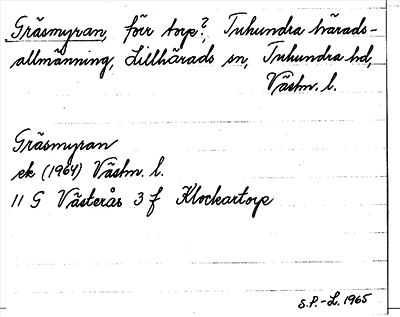 Gräsmyran, förr torp?, Tuhundra härads-
allmänning, Lillhärads sn, Tuhundra hd,
Västm. l.
Gräsmyran
ek (1964) Västm. l.
11 G Västerås 3 f Klockartorp
S.P.-L. 1965